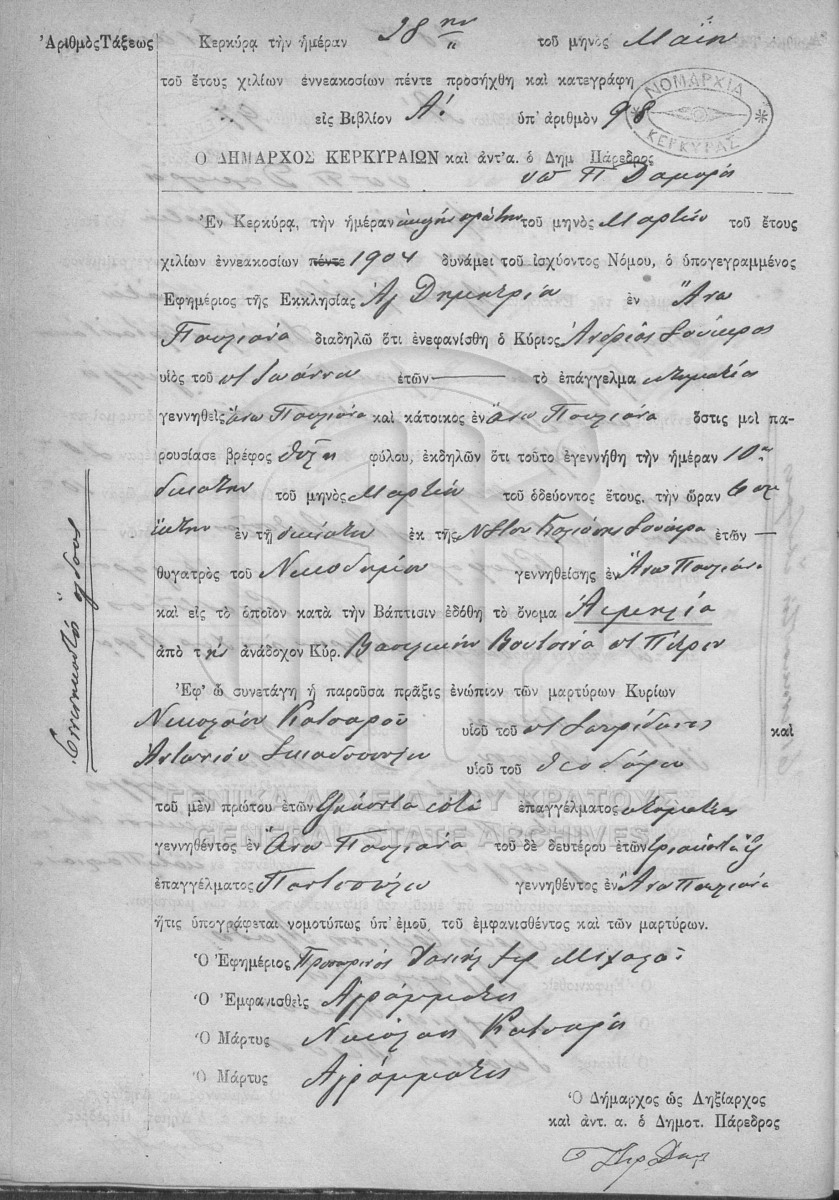 Ἀριθμὸς Τάξεως
Κερκύρᾳ τὴν ἡμέραν 28ην τοῦ μηνὸς Μαΐου
τοῦ ἔτους χιλίων ἐννεακοσίων πέντε προσήχθη καὶ κατεγράφη
εἰς Βιβλίον Α! ὑπ' ἀριθμὸν 98
ΝΟΜΑΡΧΙΑ ΚΕΡΚΥΡΑΣ
Ὁ ΔΗΜΑΡΧΟΣ ΚΕΡΚΥΡΑΙΩΝ καὶ ἀντ'α. ὁ Δημ Πάρεδρος
Ἐν Κερκύρᾳ, τὴν ἡμέραν τοῦ μηνὸς Μαρτίου τοῦ ἔτους
χιλίων ἐννεακοσίων πέντε 1904 δυνάμει τοῦ ἰσχύοντος Νόμου, ὁ ὑπογεγραμμένος
Ἐφημέριος τῆς Ἐκκλησίας Ἁγ Δημητρίου ἐν Ἄνω
Παυλιάνα διαδηλῶ ὅτι ἐνεφανίσθη ὁ Κύριος Ἀνδρέας
υἱὸς τοῦ Ἰωάννου ἐτῶν — τὸ ἐπάγγελμα κτηματίας
γεννηθεὶς Ἄνω Παυλιάνα καὶ κάτοικος ἐν Ἄνω Παυλιάνα ὅστις μοὶ πα-
ρουσίασε βρέφος θήλη φύλου, ἐκδηλῶν ὅτι τοῦτο ἐγεννήθη τὴν ἡμέραν 10ην
δεκάτην τοῦ μηνὸς Μαρτίου τοῦ ὁδεύοντος ἔτους, τὴν ὥραν 6ην
ἕκτην ἐν τῇ ἐκ τῆς ἐτῶν —
θυγατρὸς τοῦ Νικοδήμου γεννηθείσης ἐν Ἄνω Παυλιάνα
καὶ εἰς τὸ ὁποῖον κατὰ τὴν Βάπτισιν ἐδόθη τὸ ὄνομα Αἰμηλία
ἀπὸ τὴν ἀνάδοχον Κύρ. Βασιλικὴν Βουτσινᾶ Πέτρου
Ἐφ' ᾧ συνετάγη ἡ παροῦσα πρᾶξις ἐνώπιον τῶν μαρτύρων Κυρίων
Νικολάου Κατσαροῦ υἱοῦ τοῦ Σπυρίδωνος καὶ
Ἀντωνίου υἱοῦ τοῦ Θεοδώρου
τοῦ μὲν πρώτου ἐτῶν ἑξήκοντα ἑπτὰ ἐπαγγέλματος κτηματίας
γεννηθέντος ἐν Ἄνω Παυλιάνα τοῦ δὲ δευτέρου ἐτῶν τριάκοντα ἓξ
ἐπαγγέλματος Παντοπώλου γεννηθέντος ἐν Ἄνω Παυλιάνα
ἥτις ὑπογράφεται νομοτύπως ὑπ' ἐμοῦ, τοῦ ἐμφανισθέντος καὶ τῶν μαρτύρων.
Ὁ Ἐφημέριος
Ὁ Ἐμφανισθεὶς Ἀγράμματος
Ὁ Μάρτυς Νικόλαος Κατσαρὸς
Ὁ Μάρτυς Ἀγράμματος
Ὁ Δήμαρχος ὡς Ληξίαρχος
καὶ ἀντ. α. ὁ Δημοτ. Πάρεδρος
ΓΕΝΙΚΑ ΑΡΧΕΙΑ ΤΟΥ ΚΡΑΤΟΥΣ
GENERAL STATE ARCHIVES